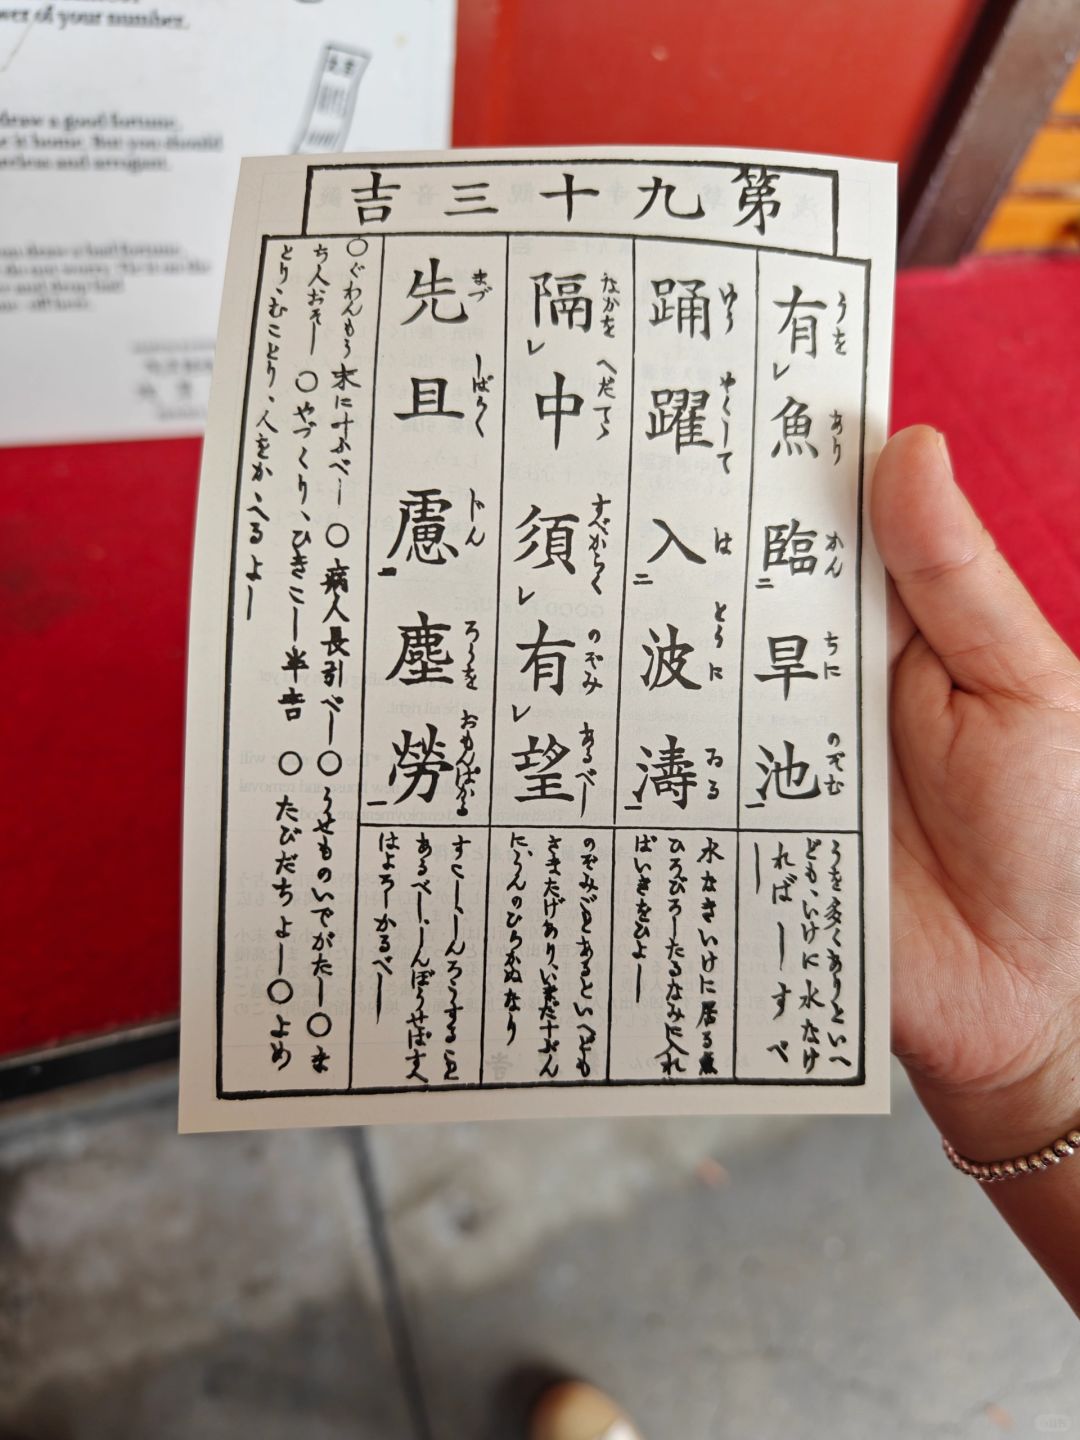 ower of your number.
draw a good fortune,
e it home. But you should
areless and arrogant.
you draw a bad fortune,
第九十三吉
有レ魚臨二旱池一
うを あり かん ちに のぞむ
うを多くありといへ
ども、いけに水なけ
ればしすべ
し
踊躍入二波濤一
ゆう やくして は とうに ゐる
水なきいけに居る魚
ひろびろしたるなみに入れ
ばいきをひよし
隔レ中須レ有レ望
なかを へだてゝ すべからく のぞみ あるべし
のぞみごとあるといへども
さまたげあり、いまだ十ぶん
に、うんのひらかぬなり
先且慮二塵勞一
まづ しばらく ぢん ろうを おもんばかる
すこし、しんろうする事
あるべし、しんぼうせばすへ
はよろしかるべし
〇ぐわんもう末に叶ふべし 〇病人長引べし〇うせものいでがたし〇ま
ち人おそし 〇やづくり、ひきこし半吉 〇たびだちよし〇よめ
とり、むことり、人をかゝへるよし